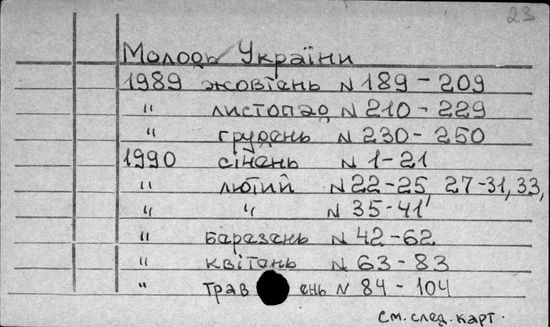 23
Молодь України
1989 жовтень N 189 - 209
" листопад N 210 - 229
" грудень N 230 - 250
1990 січень N 1 - 21
" лютий N 22 - 25 27 - 31, 33,
" " N 35 - 41
" березень N 42 - 62
" квітень N 63 - 83
" травень N 84 - 104
см. след. карт.